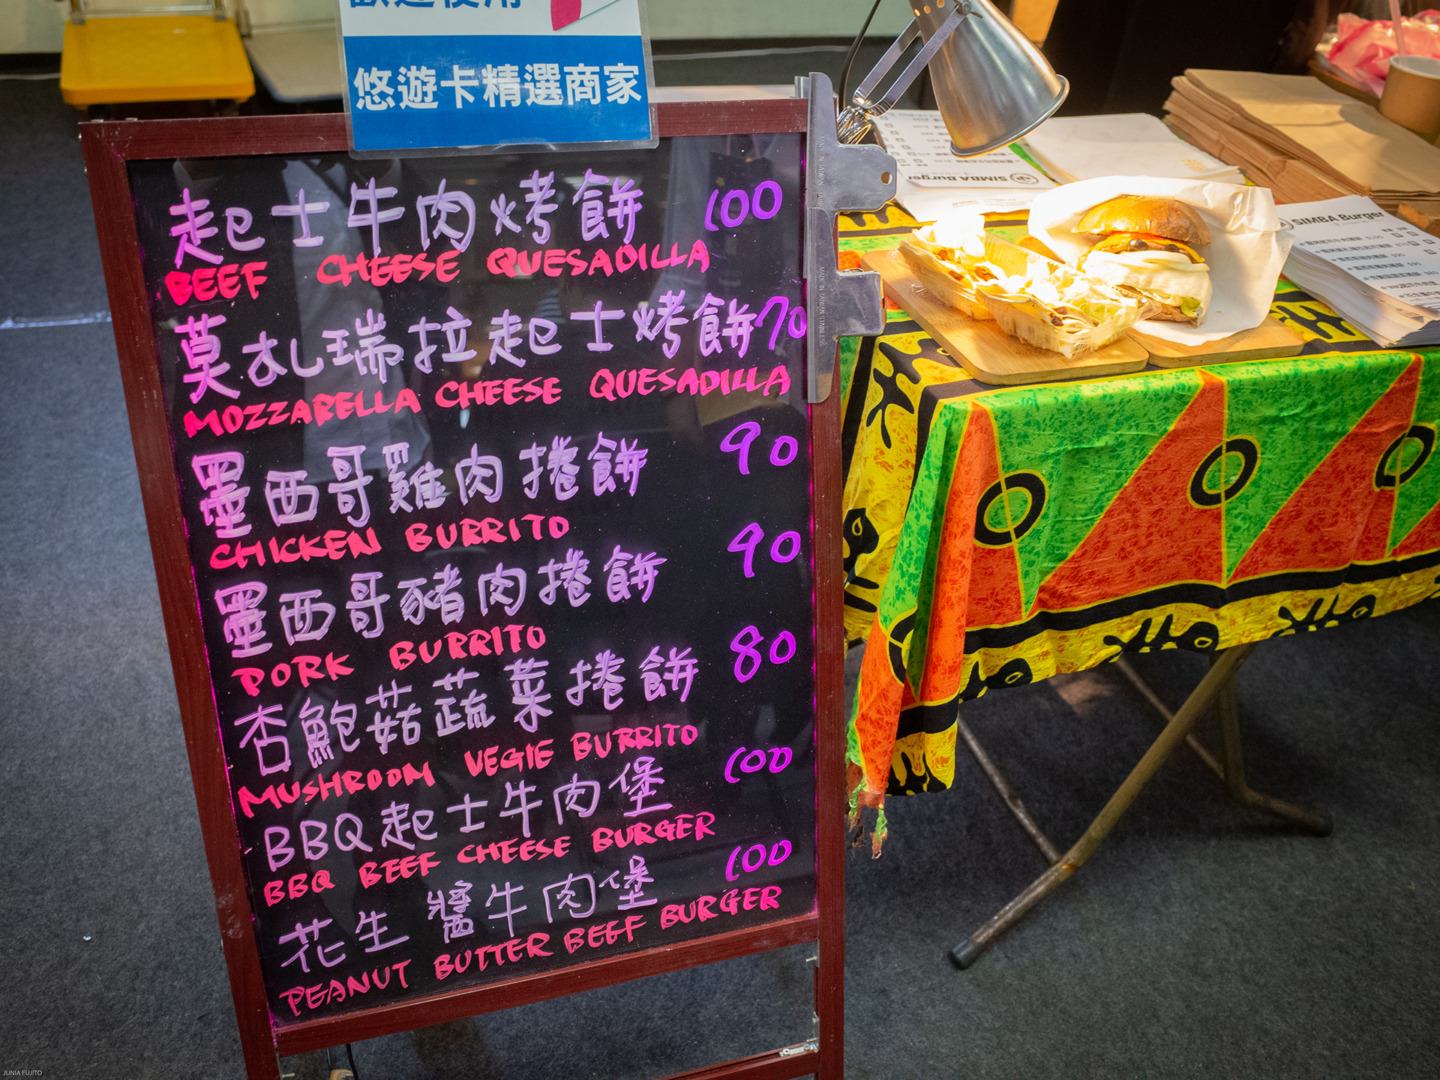 歡迎使用
悠遊卡精選商家
起士牛肉烤餅 100
BEEF CHEESE QUESADILLA
莫札瑞拉起士烤餅 70
MOZZARELLA CHEESE QUESADILLA
墨西哥雞肉捲餅 90
CHICKEN BURRITO
墨西哥豬肉捲餅 90
PORK BURRITO
杏鮑菇蔬菜捲餅 80
MUSHROOM VEGIE BURRITO
BBQ起士牛肉堡 100
BBQ BEEF CHEESE BURGER
花生醬牛肉堡 100
PEANUT BUTTER BEEF BURGER
SIMBA Burger
SIMBA Burger
JUNIA FUJITO